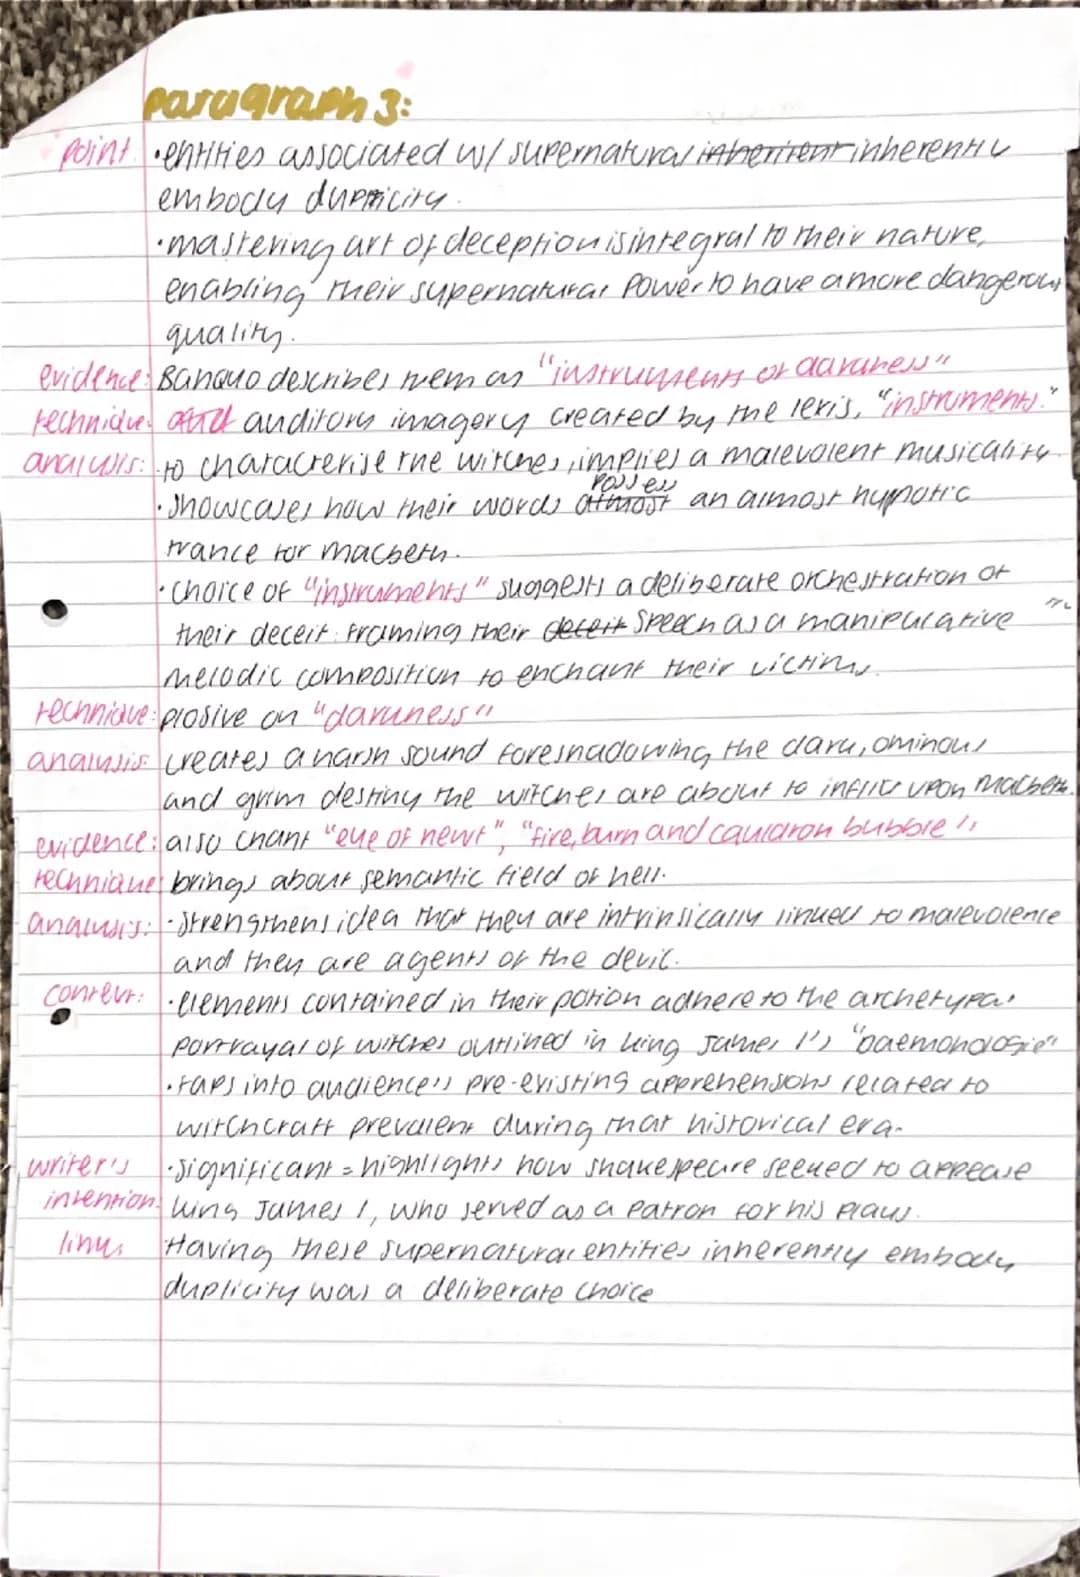 paragraph 3:
point: •entities associated w/ supernatural inheritent inherently
embody duplicity.
•mastering art of deception is integral to their nature,
enabling their supernatural power to have a more dangerous
quality.
evidence: Banquo describes them as "instruments of darkness"
technique: auditory imagery created by the lexis, "instruments."
analysis: •to characterise the witches, implies a malevolent musicality.
possess
•showcases how their words almost an almost hypnotic
trance for macbeth.
•choice of "instruments" suggests a deliberate orchestration of
their deceit. Framing their deceit speech as a manipulative
melodic composition to enchant their victims.
technique: plosive on "darkness"
analysis: creates a harsh sound foreshadowing the dark, ominous
and grim destiny the witches are about to inflict upon Macbeth.
evidence: also chant "eye of newt", "fire, burn and cauldron bubble",
technique: brings about semantic field of hell.
analysis: •strengthens idea that they are intrinsically linked to malevolence
and they are agents of the devil.
context: •elements contained in their potion adhere to the archetypal
portrayal of witches outlined in king James 1's "Daemonologie"
•taps into audience's pre-existing apprehensions related to
witchcraft prevalent during that historical era.
writer's •significant = highlights how shakespeare seeked to appease
intention: king James 1, who served as a patron for his plays.
link: Having these supernatural entities inherently embody
duplicity was a deliberate choice